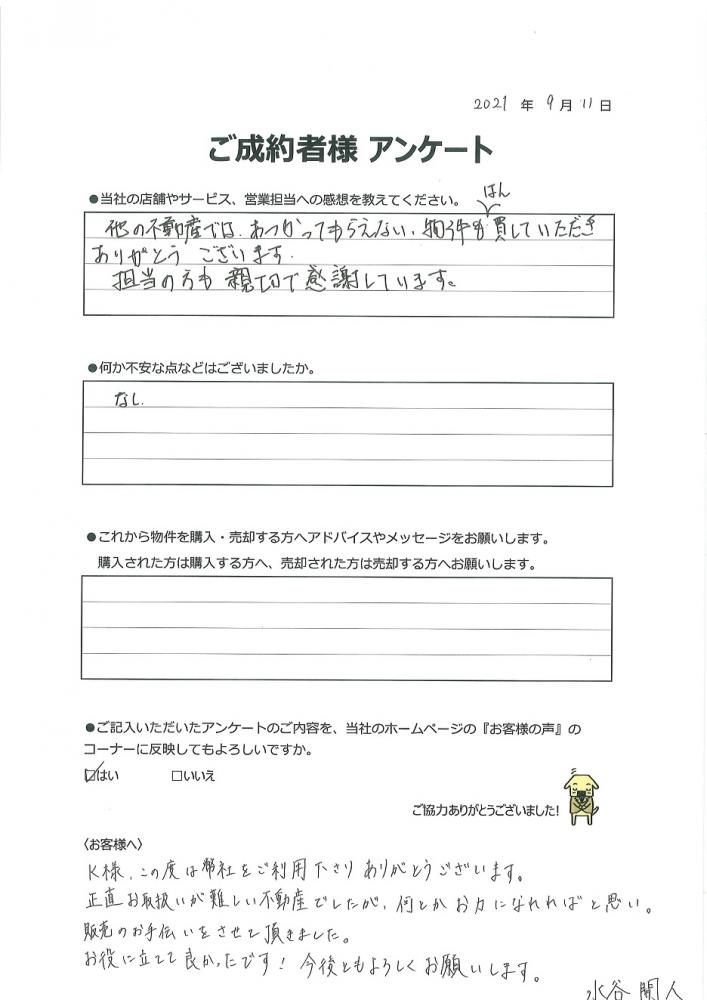 2021 年 9 月 11 日
ご成約者様 アンケート
●当社の店舗やサービス、営業担当への感想を教えてください。
はん
他の不動産では、あつかってもらえない、物件を買していただき
ありがとう ございます.
担当の方も 親切で感謝しています。
●何か不安な点などはございましたか。
なし.
●これから物件を購入・売却する方へアドバイスやメッセージをお願いします。
購入された方は購入する方へ、売却された方は売却する方へお願いします。
●ご記入いただいたアンケートのご内容を、当社のホームページの『お客様の声』の
コーナーに反映してもよろしいですか。
☑はい □いいえ
ご協力ありがとうございました!
〈お客様へ〉
K様、この度は弊社をご利用下さり ありがとうございます。
正直お取扱いが難しい不動産でしたが、何とかお力になれればと思い。
販売のお手伝いをさせて頂きました。
お役に立てて良かったです! 今後ともよろしくお願いします。
水谷 開人